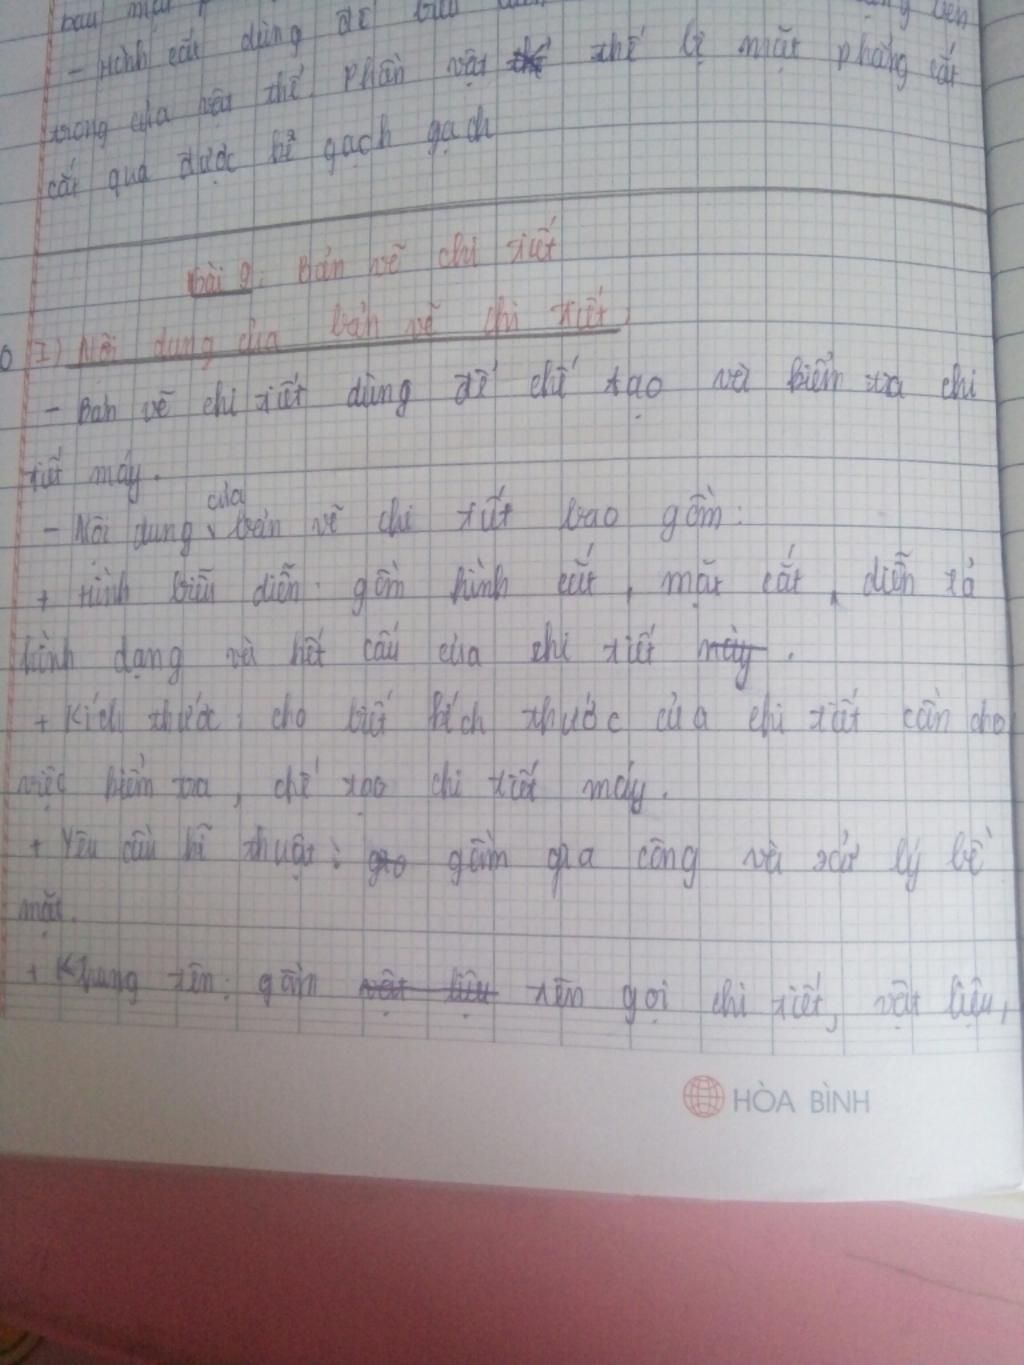 - Hình cắt dùng để
trong của vật thể. Phần vật thể bị mặt phẳng cắt
cắt qua được kẻ gạch gạch
Bài 9: Bản vẽ chi tiết
I) Nội dung của bản vẽ chi tiết
- Bản vẽ chi tiết dùng để chế tạo và kiểm tra chi
tiết máy.
- Nội dung của bản vẽ chi tiết bao gồm:
+ Hình biểu diễn: gồm hình cắt, mặt cắt, diễn tả
hình dạng và kết cấu của chi tiết máy.
+ Kích thước: cho biết kích thước của chi tiết cần cho
việc kiểm tra, chế tạo chi tiết máy.
+ Yêu cầu kĩ thuật: gồm gia công và xử lý bề
mặt.
+ Khung tên: gồm vật liệu tên gọi chi tiết, vật liệu,
HÒA BÌNH